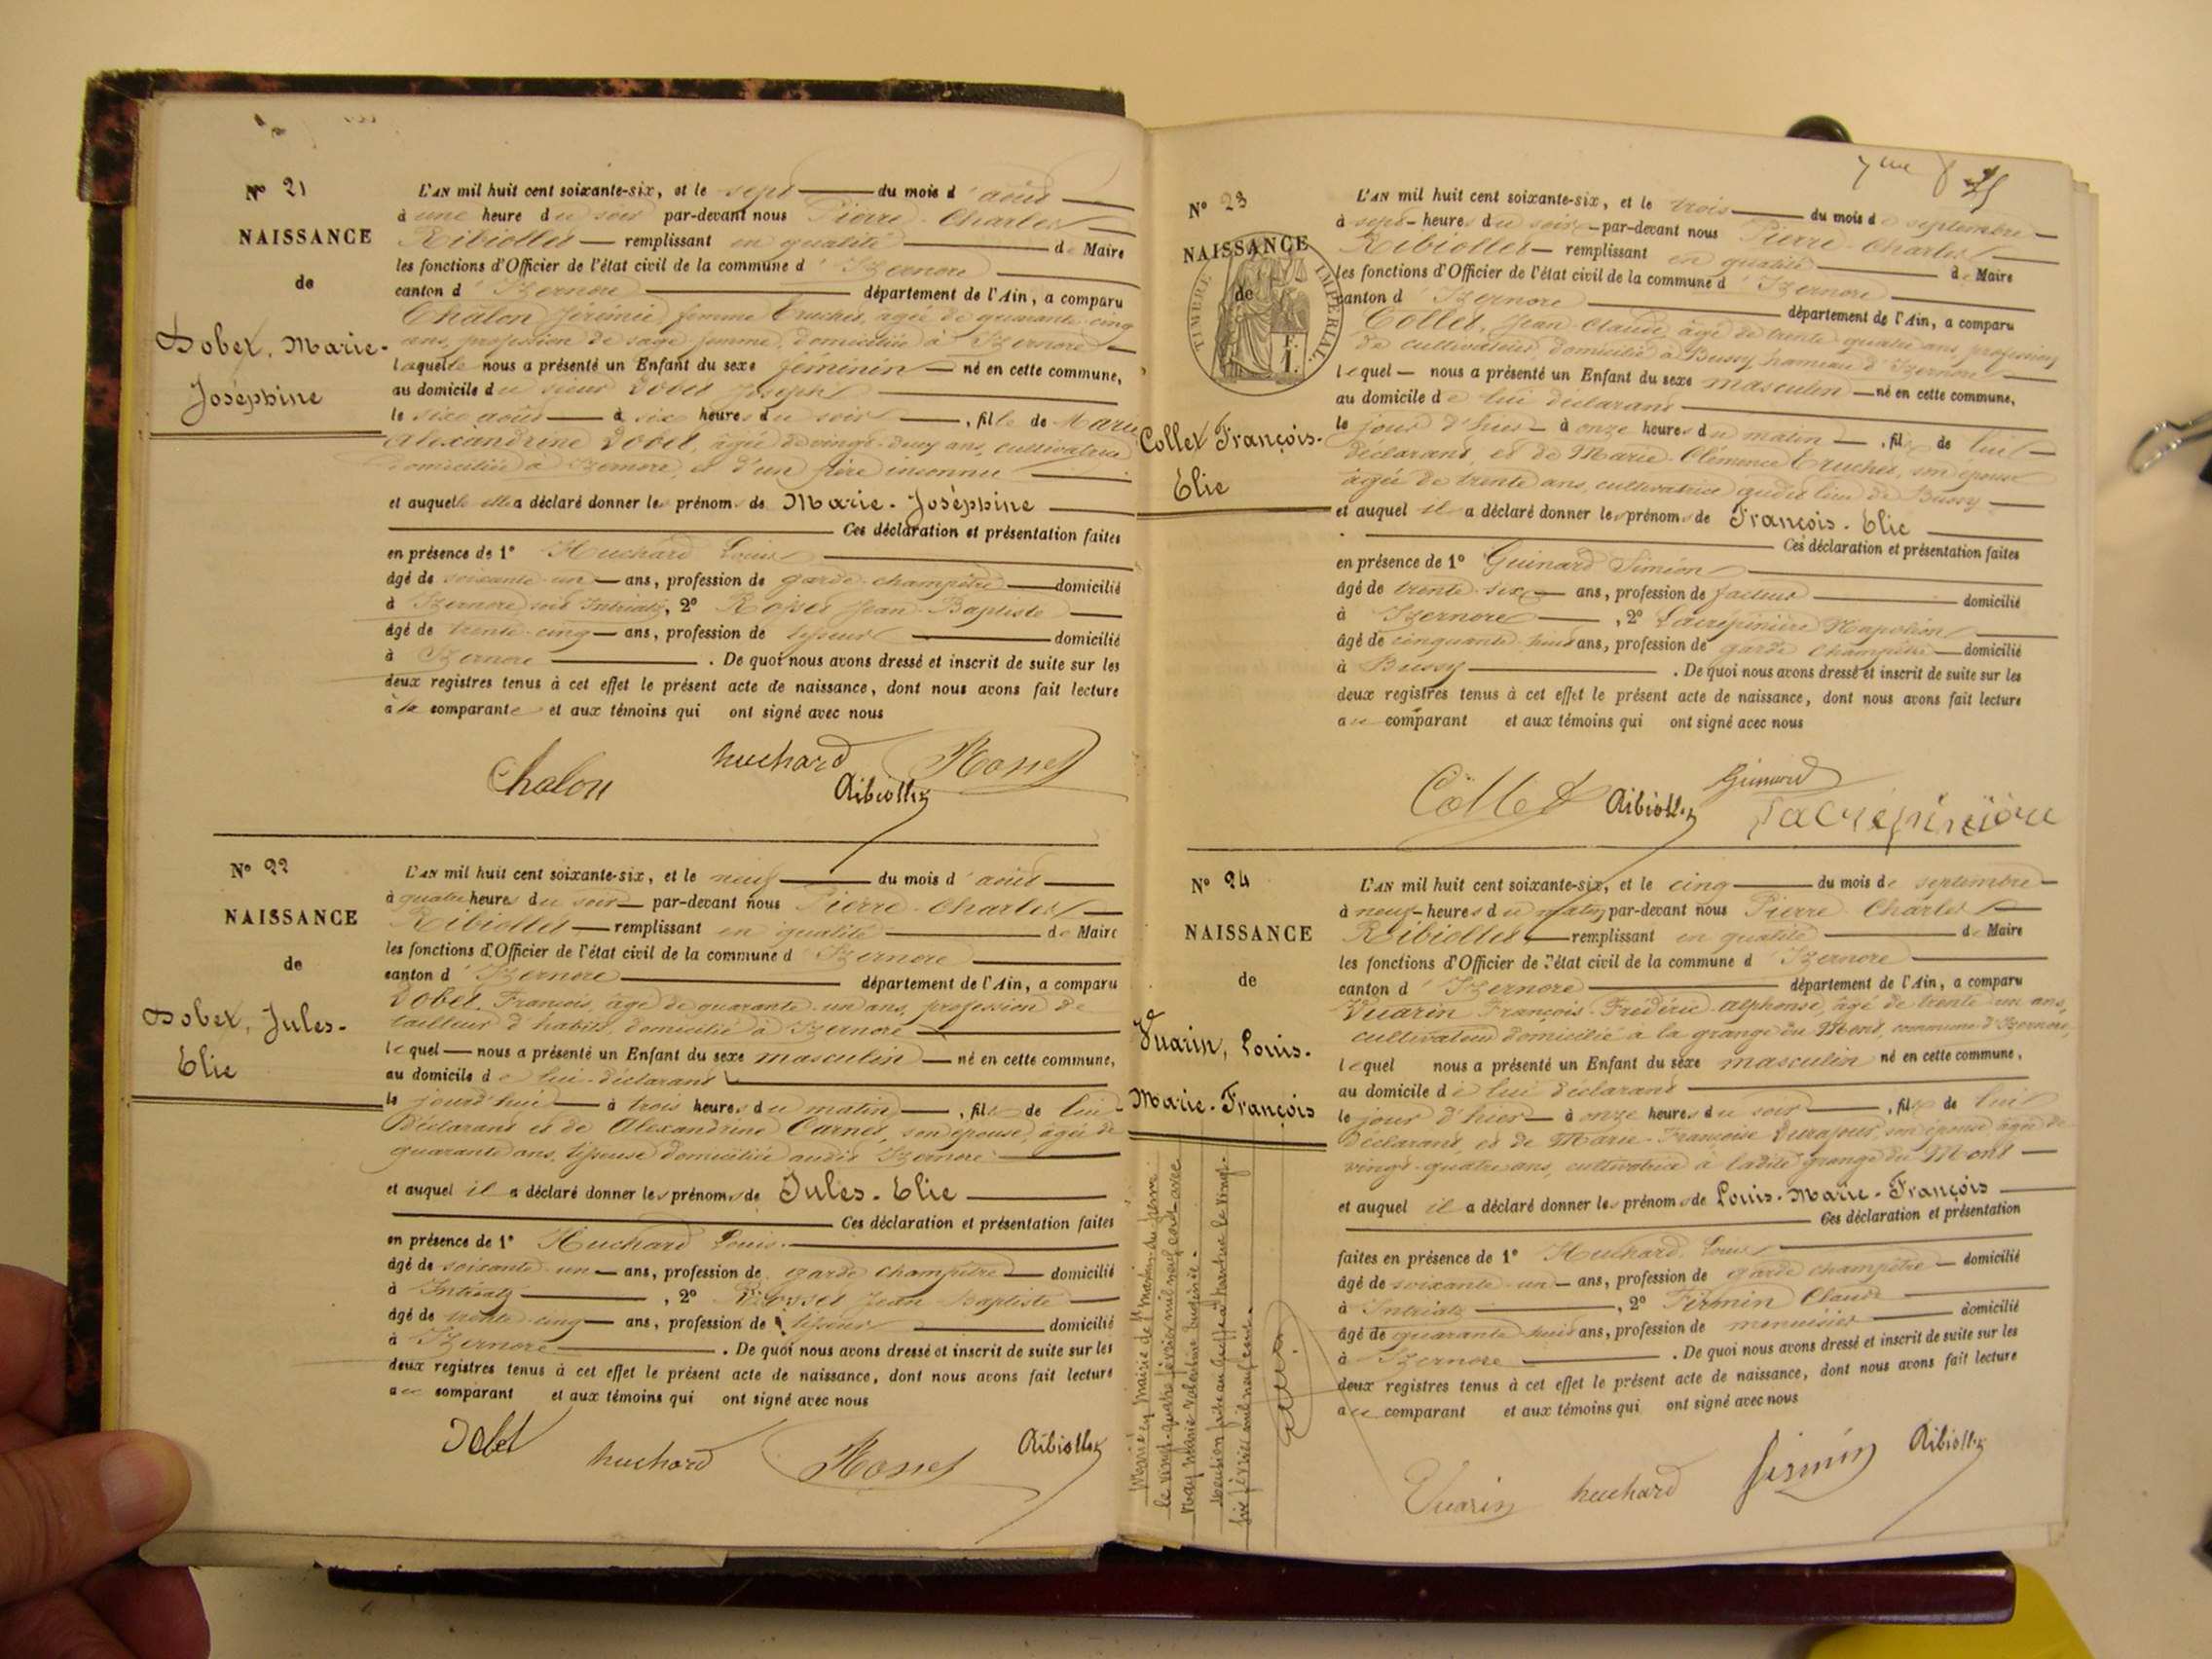 N° 21
NAISSANCE
de
Dobet, Marie-
Joséphine
L'AN mil huit cent soixante-six, et le sept du mois d'août
à une heure du soir par-devant nous Pierre-Charles
Ribiollet remplissant en qualité de Maire
les fonctions d'Officier de l'état civil de la commune d'Izernore
canton d'Izernore département de l'Ain, a comparu
Châlon Jérémie femme Truchet, âgée de quarante-cinq
ans, profession de sage femme, domiciliée à Izernore
laquelle nous a présenté un Enfant du sexe féminin né en cette commune,
au domicile du sieur Dobet Joseph
le six août à six heures du soir, fille de Marie
Alexandrine Dobet, âgée de vingt-deux ans, cultivatrice
domiciliée à Izernore, et d'un père inconnu
et auquelle elle a déclaré donner les prénoms de Marie-Joséphine
Ces déclaration et présentation faites
en présence de 1° Huchard Louis
âgé de soixante-un ans, profession de garde-champêtre domicilié
à Izernore, soit Intriatz, 2° Rosset Jean-Baptiste
âgé de trente-cinq ans, profession de tisseur domicilié
à Izernore. De quoi nous avons dressé et inscrit de suite sur les
deux registres tenus à cet effet le présent acte de naissance, dont nous avons fait lecture
à la comparante et aux témoins qui ont signé avec nous
Chalon huchard Rosset
Ribiollet
N° 22
NAISSANCE
de
Dobet, Jules-
Elie
L'AN mil huit cent soixante-six, et le neuf du mois d'août
à quatre heures du soir par-devant nous Pierre-Charles
Ribiollet remplissant en qualité de Maire
les fonctions d'Officier de l'état civil de la commune d'Izernore
canton d'Izernore département de l'Ain, a comparu
Dobet, François, âgé de quarante-un ans, profession de
tailleur d'habits, domicilié à Izernore
lequel nous a présenté un Enfant du sexe masculin né en cette commune,
au domicile de lui déclarant
le jourd'hui à trois heures du matin, fils de lui
Déclarant et de Alexandrine Carnet, son épouse, âgée de
quarante ans, tisseuse domiciliée audit Izernore
et auquel il a déclaré donner les prénoms de Jules-Elie
Ces déclaration et présentation faites
en présence de 1° Huchard Louis
âgé de soixante-un ans, profession de garde champêtre domicilié
à Intriatz, 2° Rosset Jean-Baptiste
âgé de trente-cinq ans, profession de tisseur domicilié
à Izernore. De quoi nous avons dressé et inscrit de suite sur les
deux registres tenus à cet effet le présent acte de naissance, dont nous avons fait lecture
au comparant et aux témoins qui ont signé avec nous
Dobet huchard Rosset Ribiollet
N° 23
NAISSANCE
de
TIMBRE IMPÉRIAL
F.
1.
Collet François-
Elie
L'AN mil huit cent soixante-six, et le trois du mois de septembre
à sept heures du soir par-devant nous Pierre-Charles
Ribiollet remplissant en qualité de Maire
les fonctions d'Officier de l'état civil de la commune d'Izernore
canton d'Izernore département de l'Ain, a comparu
Collet, Jean-Claude, âgé de trente-quatre ans, profession
de cultivateur, domicilié à Bussy hameau d'Izernore
lequel nous a présenté un Enfant du sexe masculin né en cette commune,
au domicile de lui déclarant
le jour d'hier à onze heures du matin, fils de lui
déclarant, et de Marie-Clémence Truchet, son épouse
âgée de trente ans, cultivatrice audit lieu de Bussy
et auquel il a déclaré donner les prénoms de François-Elie
Ces déclaration et présentation faites
en présence de 1° Guinard Siméon
âgé de trente-six ans, profession de facteur domicilié
à Izernore, 2° Lacrépinière Napoléon
âgé de cinquante-huit ans, profession de garde champêtre domicilié
à Bussy. De quoi nous avons dressé et inscrit de suite sur les
deux registres tenus à cet effet le présent acte de naissance, dont nous avons fait lecture
au comparant et aux témoins qui ont signé avec nous
Collet Ribiollet Guinard
Lacrépinière
N° 24
NAISSANCE
de
Vuarin, Louis-
Marie-François
L'AN mil huit cent soixante-six, et le cinq du mois de septembre
à neuf heures du matin par-devant nous Pierre-Charles
Ribiollet remplissant en qualité de Maire
les fonctions d'Officier de l'état civil de la commune d'Izernore
canton d'Izernore département de l'Ain, a comparu
Vuarin François-Frédéric-Alphonse, âgé de trente-un ans,
cultivateur domicilié à la grange du Mont, commune d'Izernore,
lequel nous a présenté un Enfant du sexe masculin né en cette commune,
au domicile de lui déclarant
le jour d'hier à onze heures du soir, fils de lui
Déclarant, et de Marie-Françoise son épouse âgée de
vingt-quatre ans, cultivatrice à ladite grange du Mont
et auquel il a déclaré donner les prénoms de Louis-Marie-François
Ces déclaration et présentation
faites en présence de 1° Huchard, Louis
âgé de soixante-un ans, profession de garde champêtre domicilié
à Intriatz, 2° Firmin Claude
âgé de quarante-huit ans, profession de menuisier domicilié
à Izernore. De quoi nous avons dressé et inscrit de suite sur les
deux registres tenus à cet effet le présent acte de naissance, dont nous avons fait lecture
au comparant et aux témoins qui ont signé avec nous
Vuarin huchard firmin Ribiollet
Marié en mairie de St Martin du
le vingt-quatre février mil neuf cent avec
Marie Valentine Eugénie.
Mention faite au Greffe à Nantua le vingt-
six février mil neuf cent.